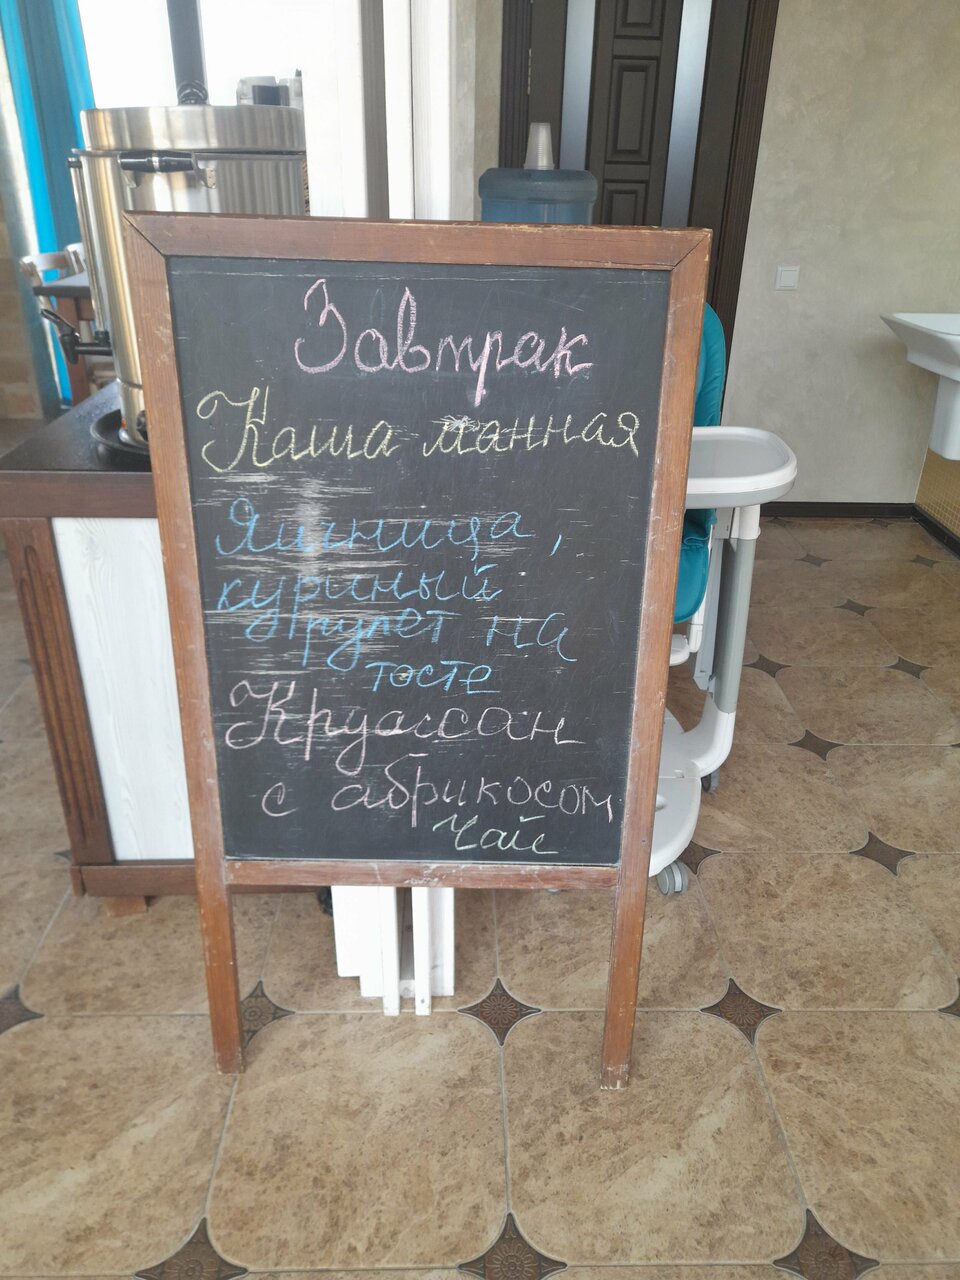 Завтрак
Каша манная
Яичница,
куриный
рулет на
тосте
Круассан
с абрикосом
Чай